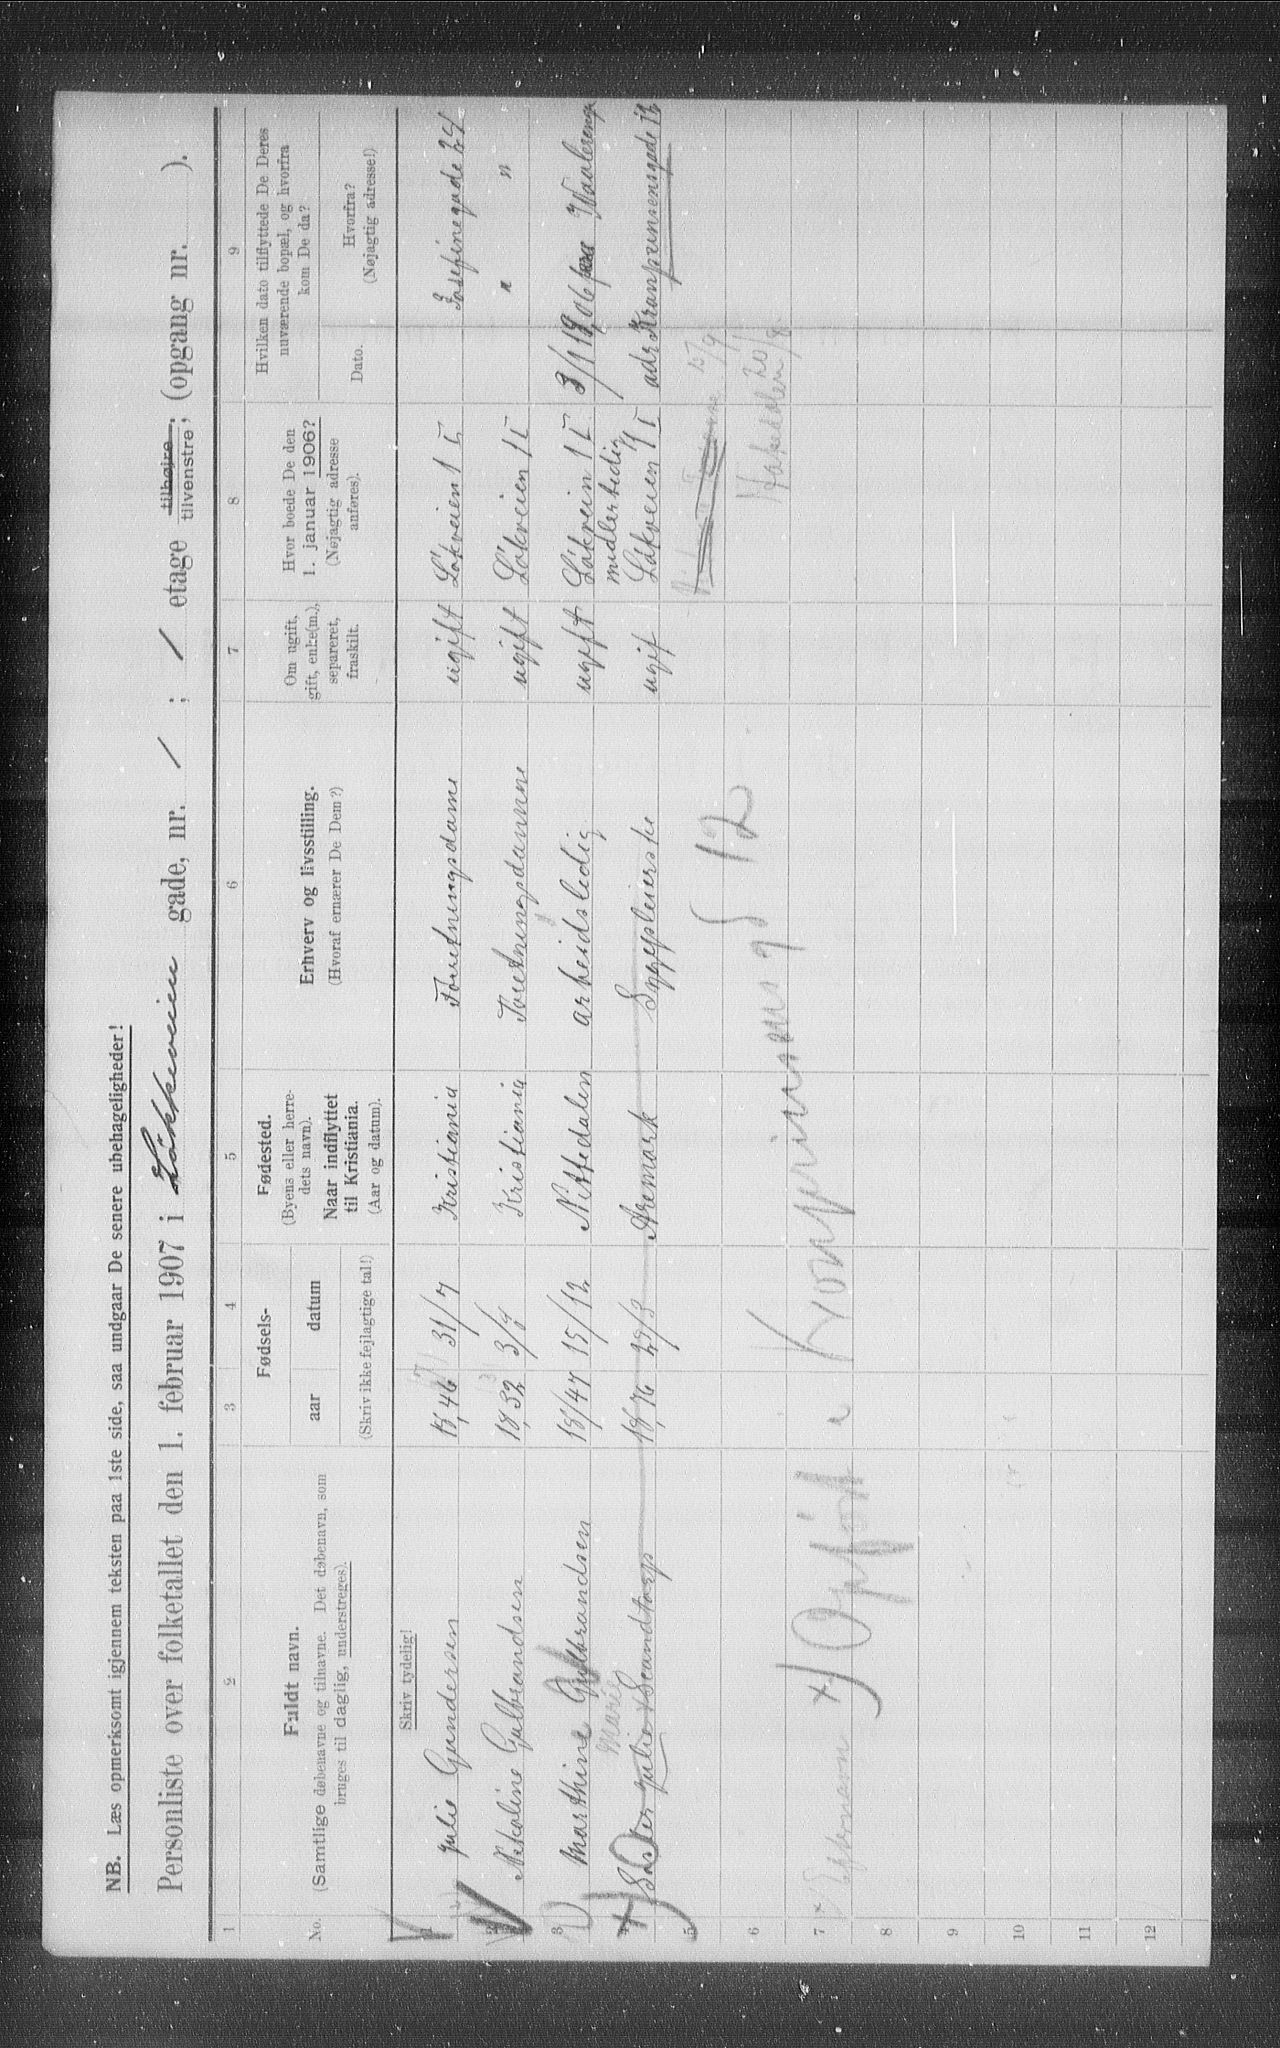 NB. Læs opmerksomt igjennem teksten paa 1ste side, saa undgaar De senere ubehageligheder!
Personliste over folketallet den 1. februar 1907 i Løkkeveien gade, nr. 1 ; 1 etage tilhøjre, tilvenstre; (opgang nr. ).
1 2 3 4 5 6 7 8 9
No.
Fuldt navn.
(Samtlige døbenavne og tilnavne. Det døbenavn, som
bruges til daglig, understreges).
Fødsels-
aar datum
(Skriv ikke fejlagtige tal!)
Fødested.
(Byens eller herre-
dets navn).
Naar indflyttet
til Kristiania.
(Aar og datum).
Erhverv og livsstilling.
(Hvoraf ernærer De Dem?)
Om ugift,
gift, enke(m.),
separeret,
fraskilt.
Hvor boede De den
1. januar 1906?
(Nøjagtig adresse
anføres).
Hvilken dato tilflyttede De Deres
nuværende bopæl, og hvorfra
kom De da?
Dato.
Hvorfra?
(Nøjagtig adresse!)
Skriv tydelig!
1 Julie Gundersen 18,46 31/7 Kristiania Foretningsdame ugift Løkveien 1 I Josefinegade 24
2 Nikoline Gulbrandsen 18,32 3/9 Kristiania Foretningsdamme ugift Løkveien 1 I " "
3 Marthine Gulbrandsen 18/47 15/12 Nittedalen arbeidsledig ugift Løkvein 1 I 3/1 1906 Waalerenga
Marie midlertidig
4 Søster Julie Scandtorp 18,76 29/3 Aremark Sygepleierske ugif Løkveien 1 I adr Kronprinsensgade 12
5
6
7 +) Opført i Kronprinsensg 12
8
9
10
11
12